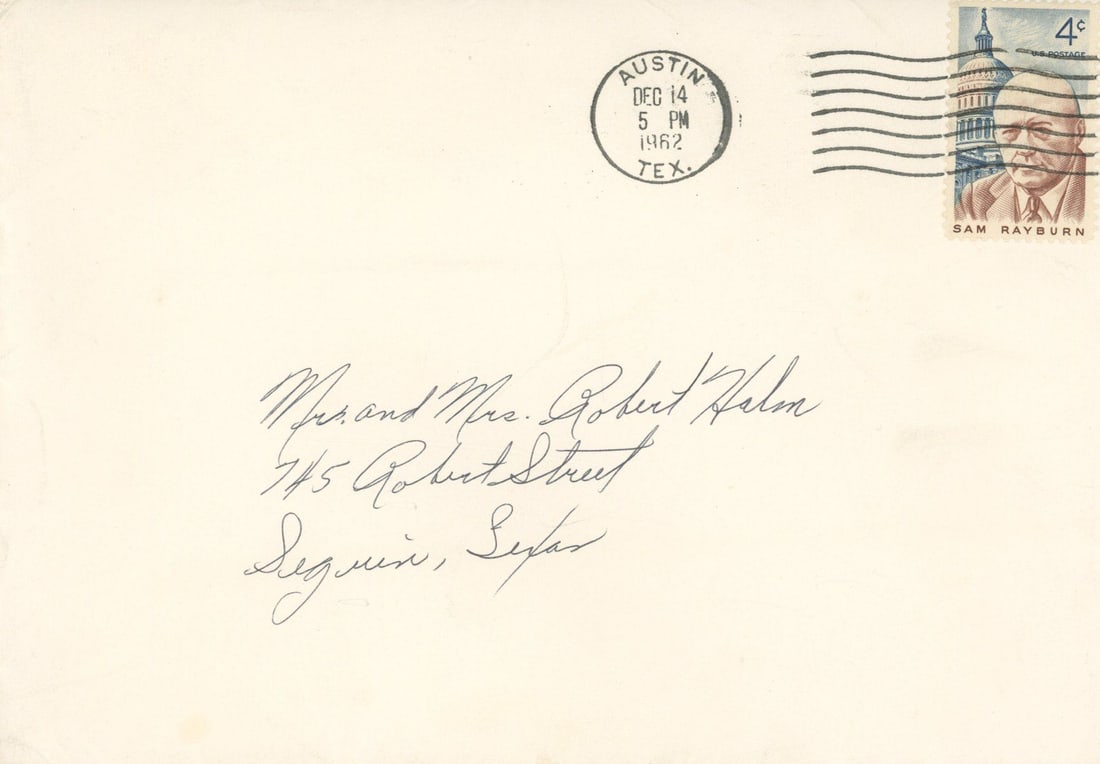 AUSTIN
DEC 14
5 PM
1962
TEX.
4¢
U.S. POSTAGE
SAM RAYBURN
Mr. and Mrs. Robert Halm
745 Robert Street
Seguin, Texas